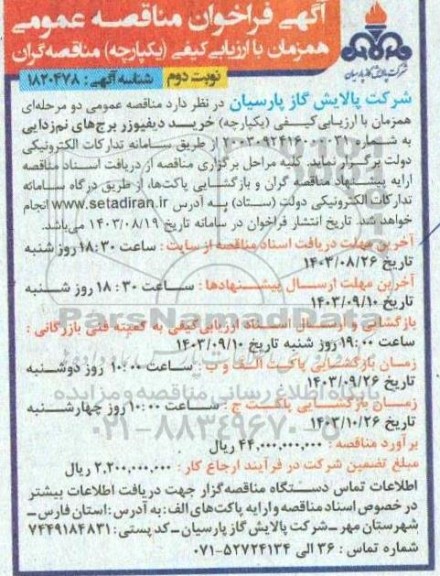 آگهی فراخوان مناقصه عمومی
همزمان با ارزیابی کیفی (یکپارچه) مناقصه گران
شرکت پالایش گاز پارسیان
نوبت دوم
شناسه آگهی: ۱۸۲۰۴۷۸
شرکت پالایش گاز پارسیان در نظر دارد مناقصه عمومی دو مرحله‌ای
همزمان با ارزیابی کیفی (یکپارچه) خرید دیفیوزر برج‌های نم‌زدایی
به شماره ۲۰۰۳۰۹۲۴۱۶۰۰۰۲۱ از طریق سامانه تدارکات الکترونیکی
دولت برگزار نماید. کلیه مراحل برگزاری مناقصه از دریافت اسناد مناقصه
ارایه پیشنهاد مناقصه گران و بازگشایی پاکت‌ها، از طریق درگاه سامانه
تدارکات الکترونیکی دولت (ستاد) به آدرس www.setadiran.ir انجام
خواهد شد. تاریخ انتشار فراخوان در سامانه تاریخ ۱۴۰۳/۰۸/۱۹ می‌باشد.
آخرین مهلت دریافت اسناد مناقصه از سایت: ساعت ۱۸:۳۰ روز شنبه
تاریخ ۱۴۰۳/۰۸/۲۶
آخرین مهلت ارسال پیشنهادها: ساعت ۱۸:۳۰ روز شنبه
تاریخ ۱۴۰۳/۰۹/۱۰
بازگشایی و ارسال اسناد ارزیابی کیفی به کمیته فنی بازرگانی:
ساعت ۱۹:۰۰ روز شنبه تاریخ ۱۴۰۳/۰۹/۱۰
زمان بازگشایی پاکت الف و ب: ساعت ۱۰:۰۰ روز دوشنبه
تاریخ ۱۴۰۳/۰۹/۲۶
زمان بازگشایی پاکت ج: ساعت ۱۰:۰۰ روز چهارشنبه
تاریخ ۱۴۰۳/۱۰/۲۶
برآورد مناقصه: ۴۴,۰۰۰,۰۰۰,۰۰۰ ریال
مبلغ تضمین شرکت در فرآیند ارجاع کار: ۲,۲۰۰,۰۰۰,۰۰۰ ریال
اطلاعات تماس دستگاه مناقصه گزار جهت دریافت اطلاعات بیشتر
در خصوص اسناد مناقصه و ارایه پاکت‌های الف: به آدرس: استان فارس ـ
شهرستان مهر ـ شرکت پالایش گاز پارسیان ـ کد پستی: ۷۴۴۹۱۸۴۸۳۱
شماره تماس: ۳۶ الی ۵۲۷۲۴۱۳۴-۰۷۱
ParsNamadData
پایگاه اطلاع رسانی مناقصه و مزایده
۰۲۱-۸۸۳۴۹۶۷۰-۵